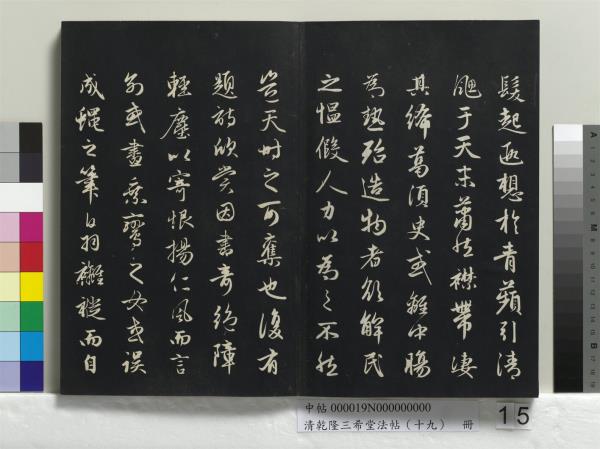 髮起遐想於青蘋引清
颸于天末蕭然襟帶淒
其絺葛須臾或離中腸
為熱殆造物者欲解民
之慍假人力以為之不然
豈天時之可奪也復有
題詩欣賞因書奇絕障
輕塵以寄恨揚仁風而言
別或畫乘鸞之女或誤
成蠅之筆白羽襳褷而自
中帖 000019N000000000
清乾隆三希堂法帖(十九) 冊
15